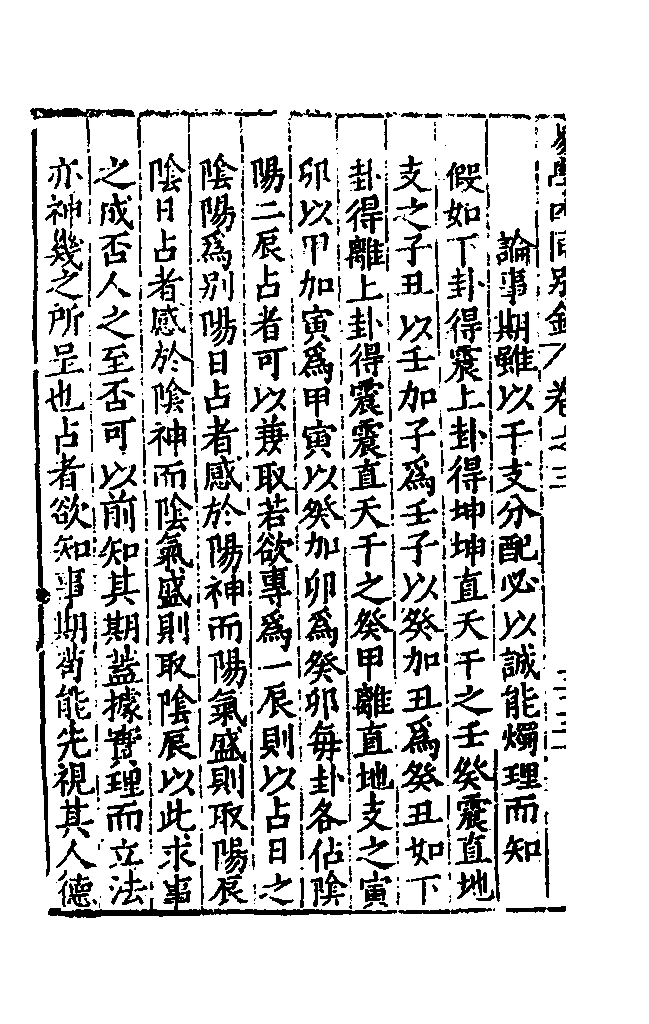 易學四同別錄 卷之三
論事期雖以干支分配必以誠能燭理而知
假如下卦得震上卦得坤坤直天干之壬癸震直地
支之子丑以壬加子爲壬子以癸加丑爲癸丑如下
卦得離上卦得震震直天干之癸甲離直地支之寅
卯以甲加寅爲甲寅以癸加卯爲癸卯每卦各佔陰
陽二辰占者可以兼取若欲專爲一辰則以占日之
陰陽爲別陽日占者感於陽神而陽氣盛則取陽辰
陰日占者感於陰神而陰氣盛則取陰辰以此求事
之成否人之至否可以前知其期蓋據實理而立法
亦神幾之所呈也占者欲知事期苟能先視其人德